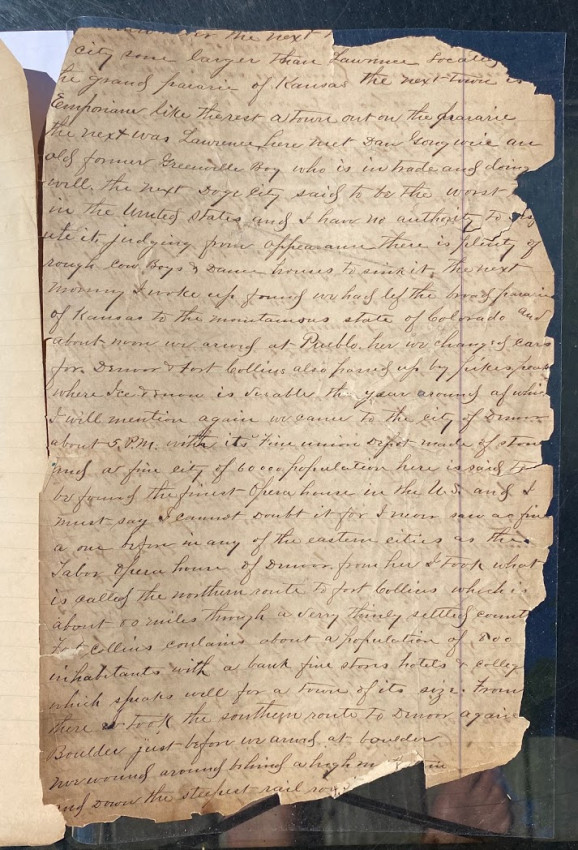 for the next
city some larger than Lawrence locality
the grand prairie of Kansas the next town is
Emporium like the rest a town out on the prairie
the next was Lawrence here met Dan
old former Greenville Boy who is in trade and doing
well. the next Doge City said to be the worst
in the United States and I have no authority to
it, judging from appearance there is plenty of
rough Cow Boys & Dance houses to sink it, the next
morning I woke up found we had left the broad prairie
of Kansas to the mountainous state of Colorado and
about noon we arived at Pueblo. her we changed cars
for Denver & Fort Collins also passed up by
where Ice & snow is the year around of which
I will mention again we came to the city of Denver
about 5 P.M. with its Fine union Depot made of stone
and a fine city of 60000 population here is said to
be found the finest Opera house in the U.S. and I
must say I cannot doubt it for I never saw as fine
a one before in any of the eastern cities as the
Tabor Opera house of Denver, from her I took what
is called the northern route to fort Collins which is
about miles though a very thinly settled
Fort Collins contains about a population of
inhabitants with a bank fine stores hotels & colleg
which speaks well for a town of its size. From
there I took the southern route to Denver again
Boulder just before we arived at boulder
we wound around behind a high
and down the steepest rail